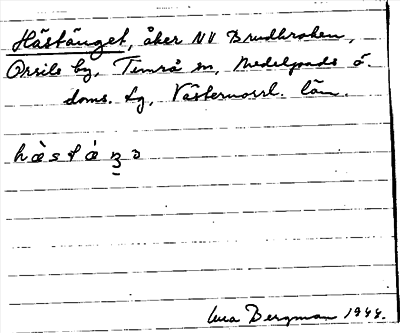 Hästänget, åker NV Brudkroken,
Orrsils by, Timrå sn, Medelpads ö.
doms. lg, Västernorrl. län.
hὰstáʒɔ
Bergman 1944.